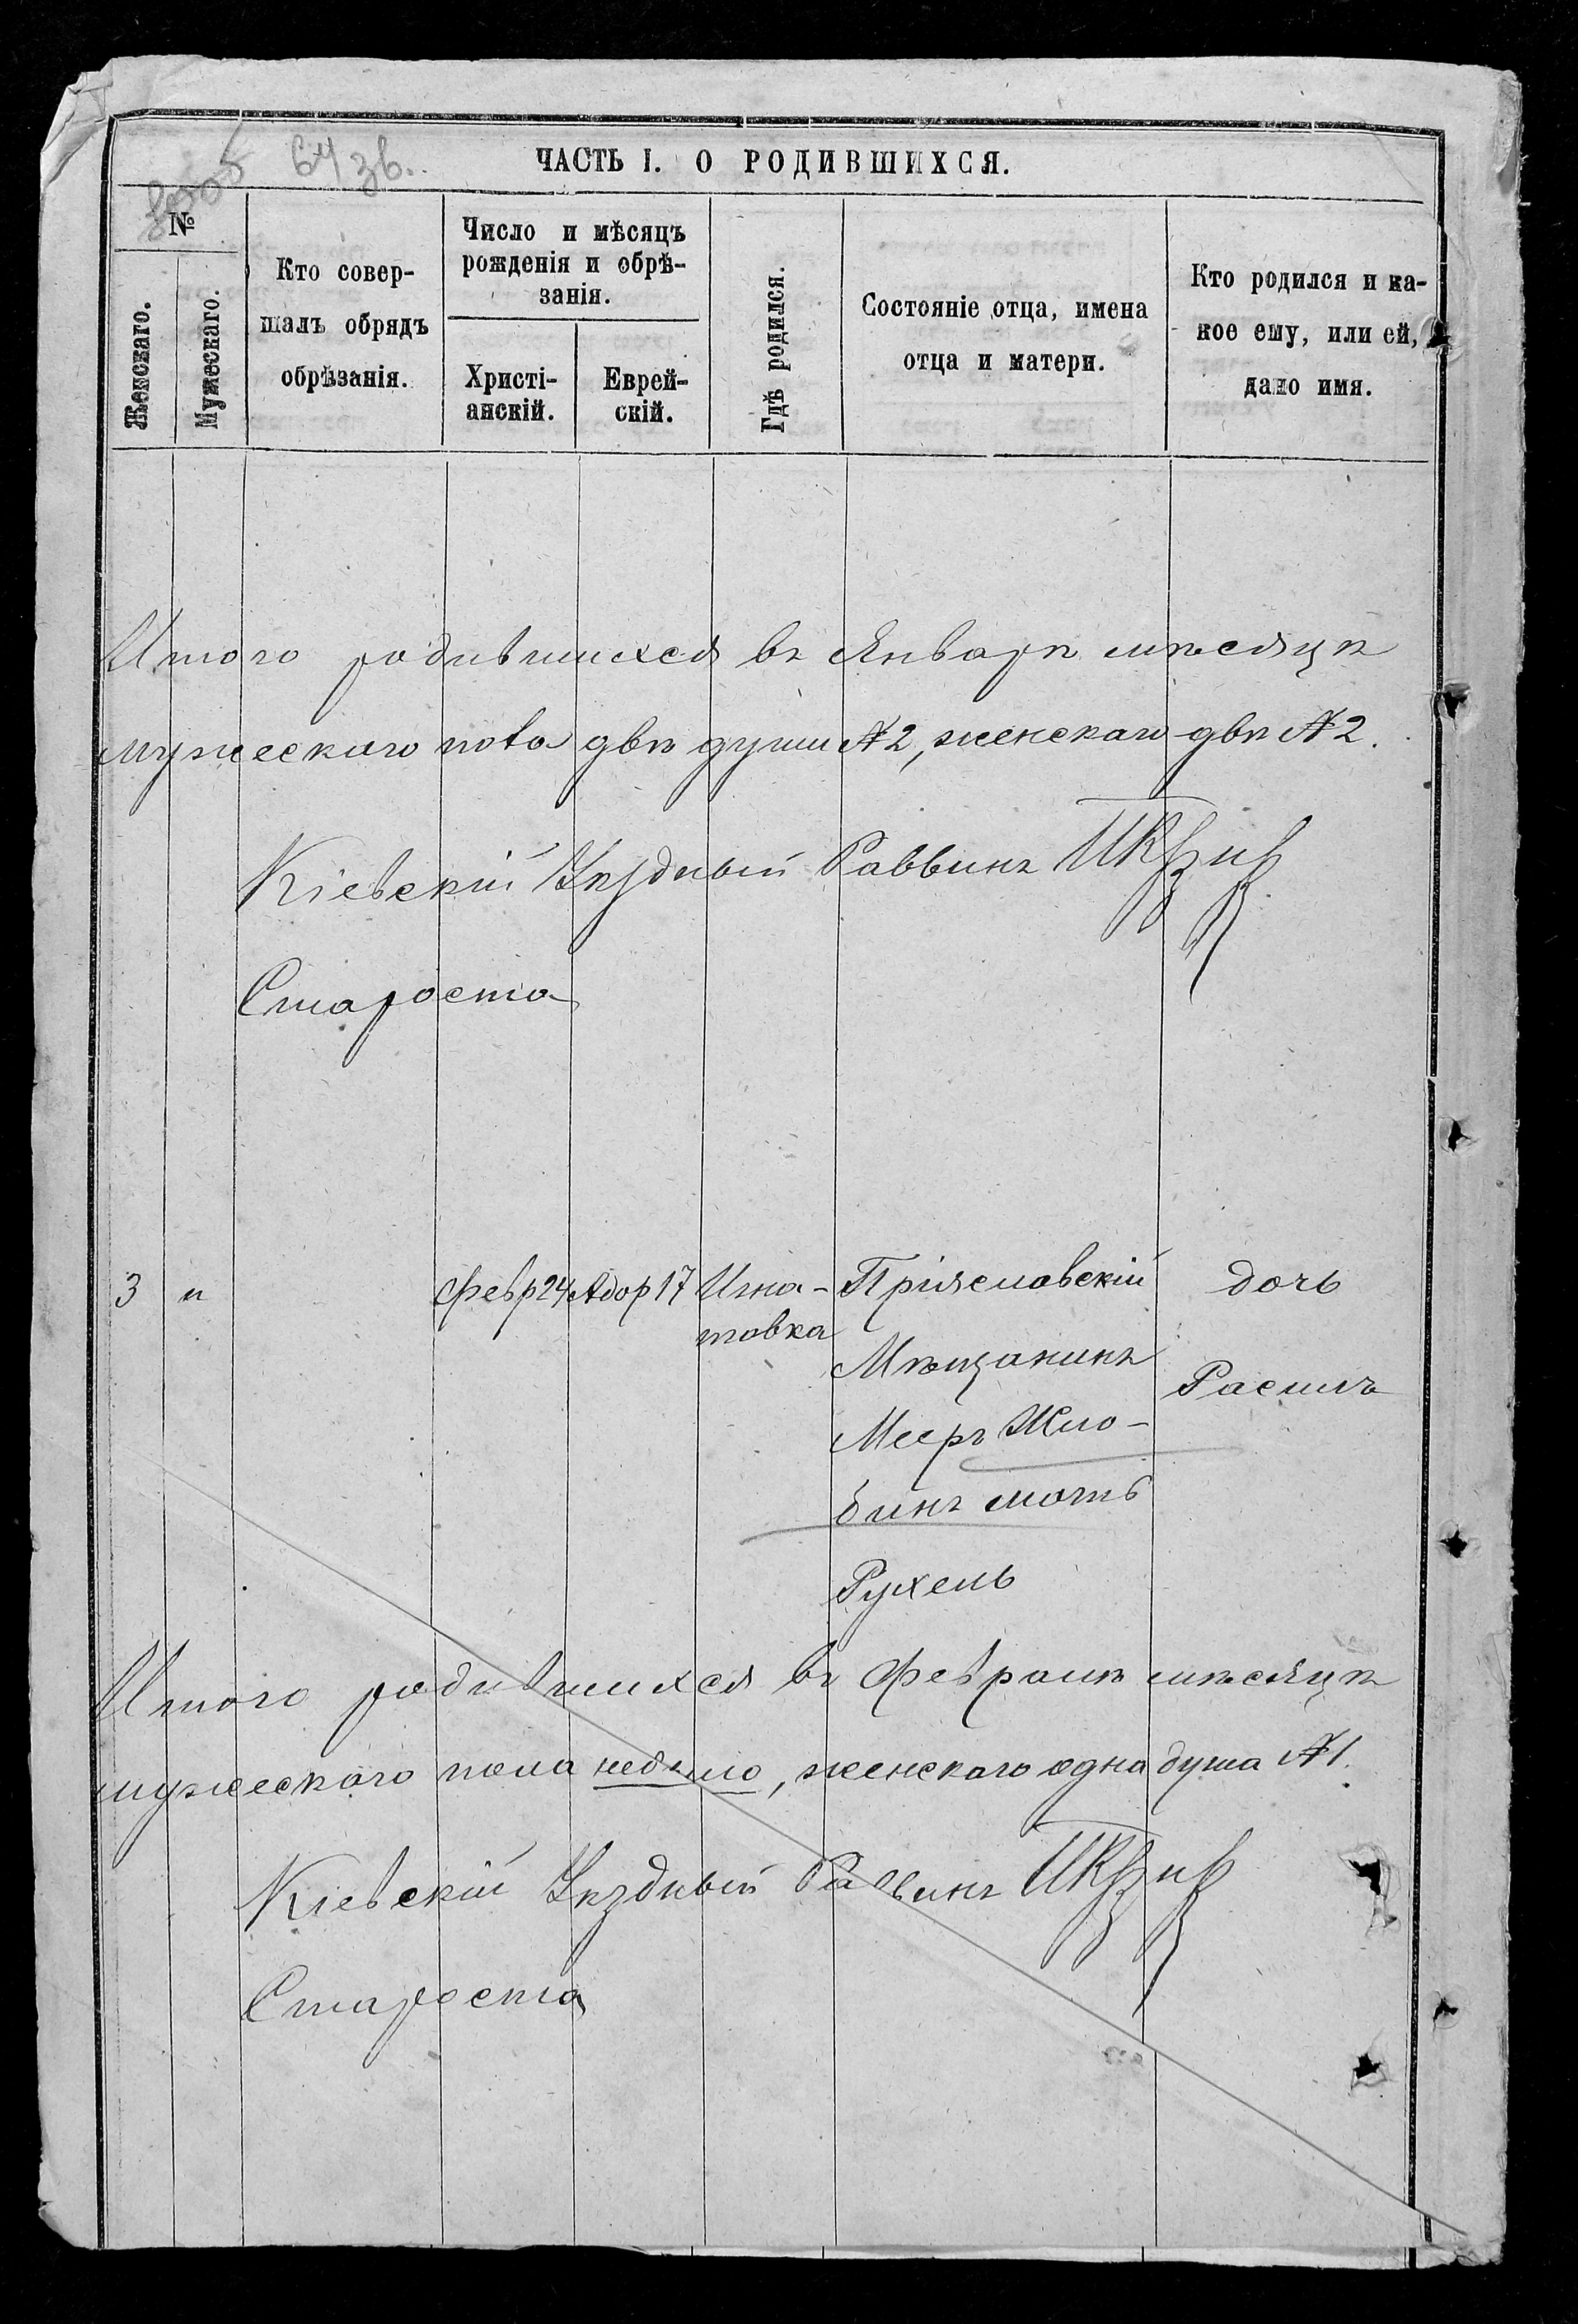 64 зв.
ЧАСТЬ I. О РОДИВШИХСЯ.
№
Женскаго.
Мужескаго.
Кто совер-
шалъ обрядъ
обрѣзанія.
Число и мѣсяцъ
рожденія и обрѣ-
занія.
Христі-
анскій.
Еврей-
скій.
Гдѣ родился.
Состояніе отца, имена
отца и матери.
Кто родился и ка-
кое ему, или ей,
дано имя.
Итого родившихся въ Январѣ мѣсяцѣ
мужескаго пола двѣ души №2, женскаго двѣ №2.
Кіевскій Уѣздный Раввинъ
Староста
3 „ Февр 24 Адор 17 Игна- Пріяславскій дочь
товка
Мѣщанинъ
Расиль
Мееръ Жло-
бинъ мать
Рухель
Итого родившихся въ Февралѣ мѣсяцѣ
мужескаго пола небыло, женскаго одна душа №1.
Кіевскій Уѣздный Раввинъ
Староста